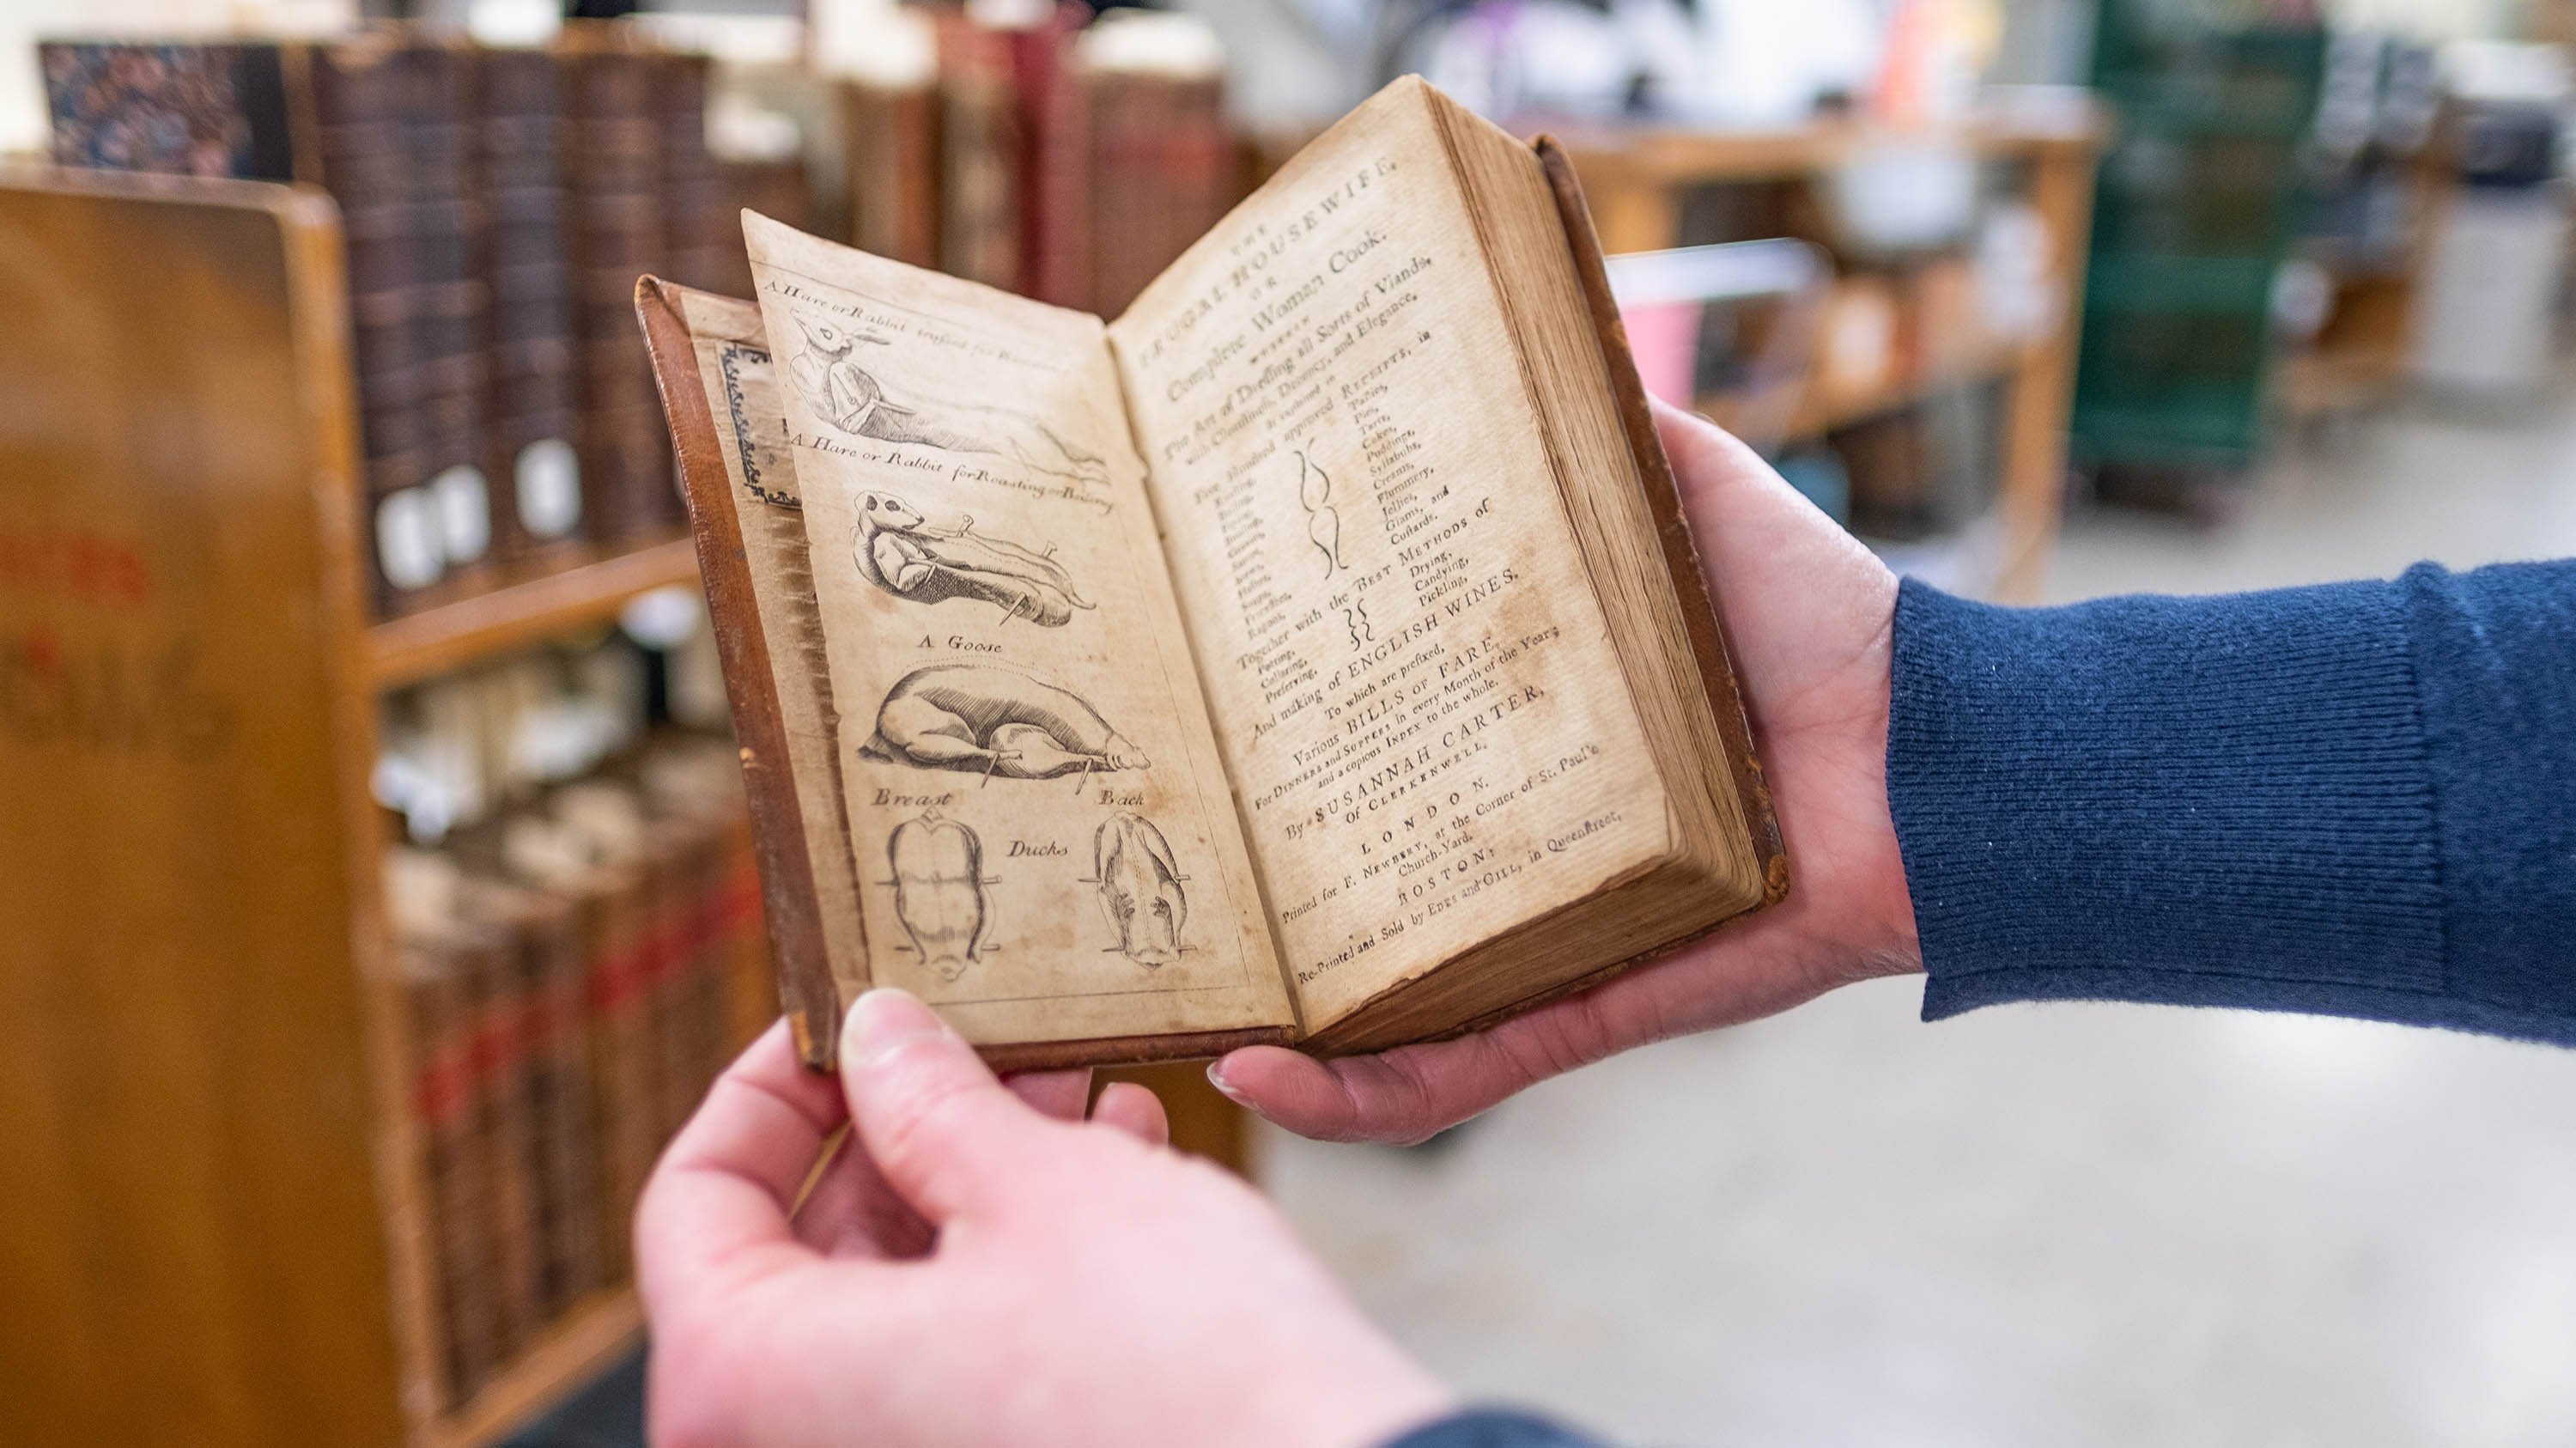 A Hare or Rabbit trussed for
A Hare or Rabbit for Roasting or Boiling
A Goose
Breast
Back
Ducks
THE
FRUGAL HOUSEWIFE,
OR
Complete Woman Cook.
WHEREIN
The Art of Dressing all Sorts of Viands,
with Cleanliness, Decency, and Elegance,
Is explained in
Five Hundred approved RECEIPTS, in
Pasties,
Pies,
Tarts,
Cakes,
Puddings,
Syllabubs,
Creams,
Flummery,
Jellies,
Giams, and
Custards.
Soups,
Fricassees,
Ragouts,
Together with the BEST METHODS of
Potting,
Collaring,
Preserving,
Drying,
Candying,
Pickling,
And making of ENGLISH WINES.
To which are prefixed,
Various BILLS OF FARE,
For DINNERS and SUPPERS in every Month of the Year;
and a copious INDEX to the whole.
By SUSANNAH CARTER,
Of CLERKENWELL.
LONDON.
Printed for F. NEWBERY, at the Corner of St. Paul's
Church-Yard.
BOSTON:
Re-Printed and Sold by EDES and GILL, in Queenstreet,